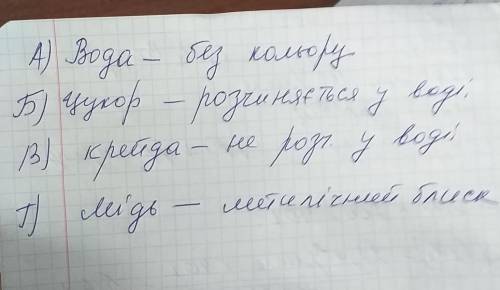 А) Вода – без кольору
Б) Цукор – розчиняється у воді.
В) крейда – не розч. у воді.
Г) мідь – металічний блиск